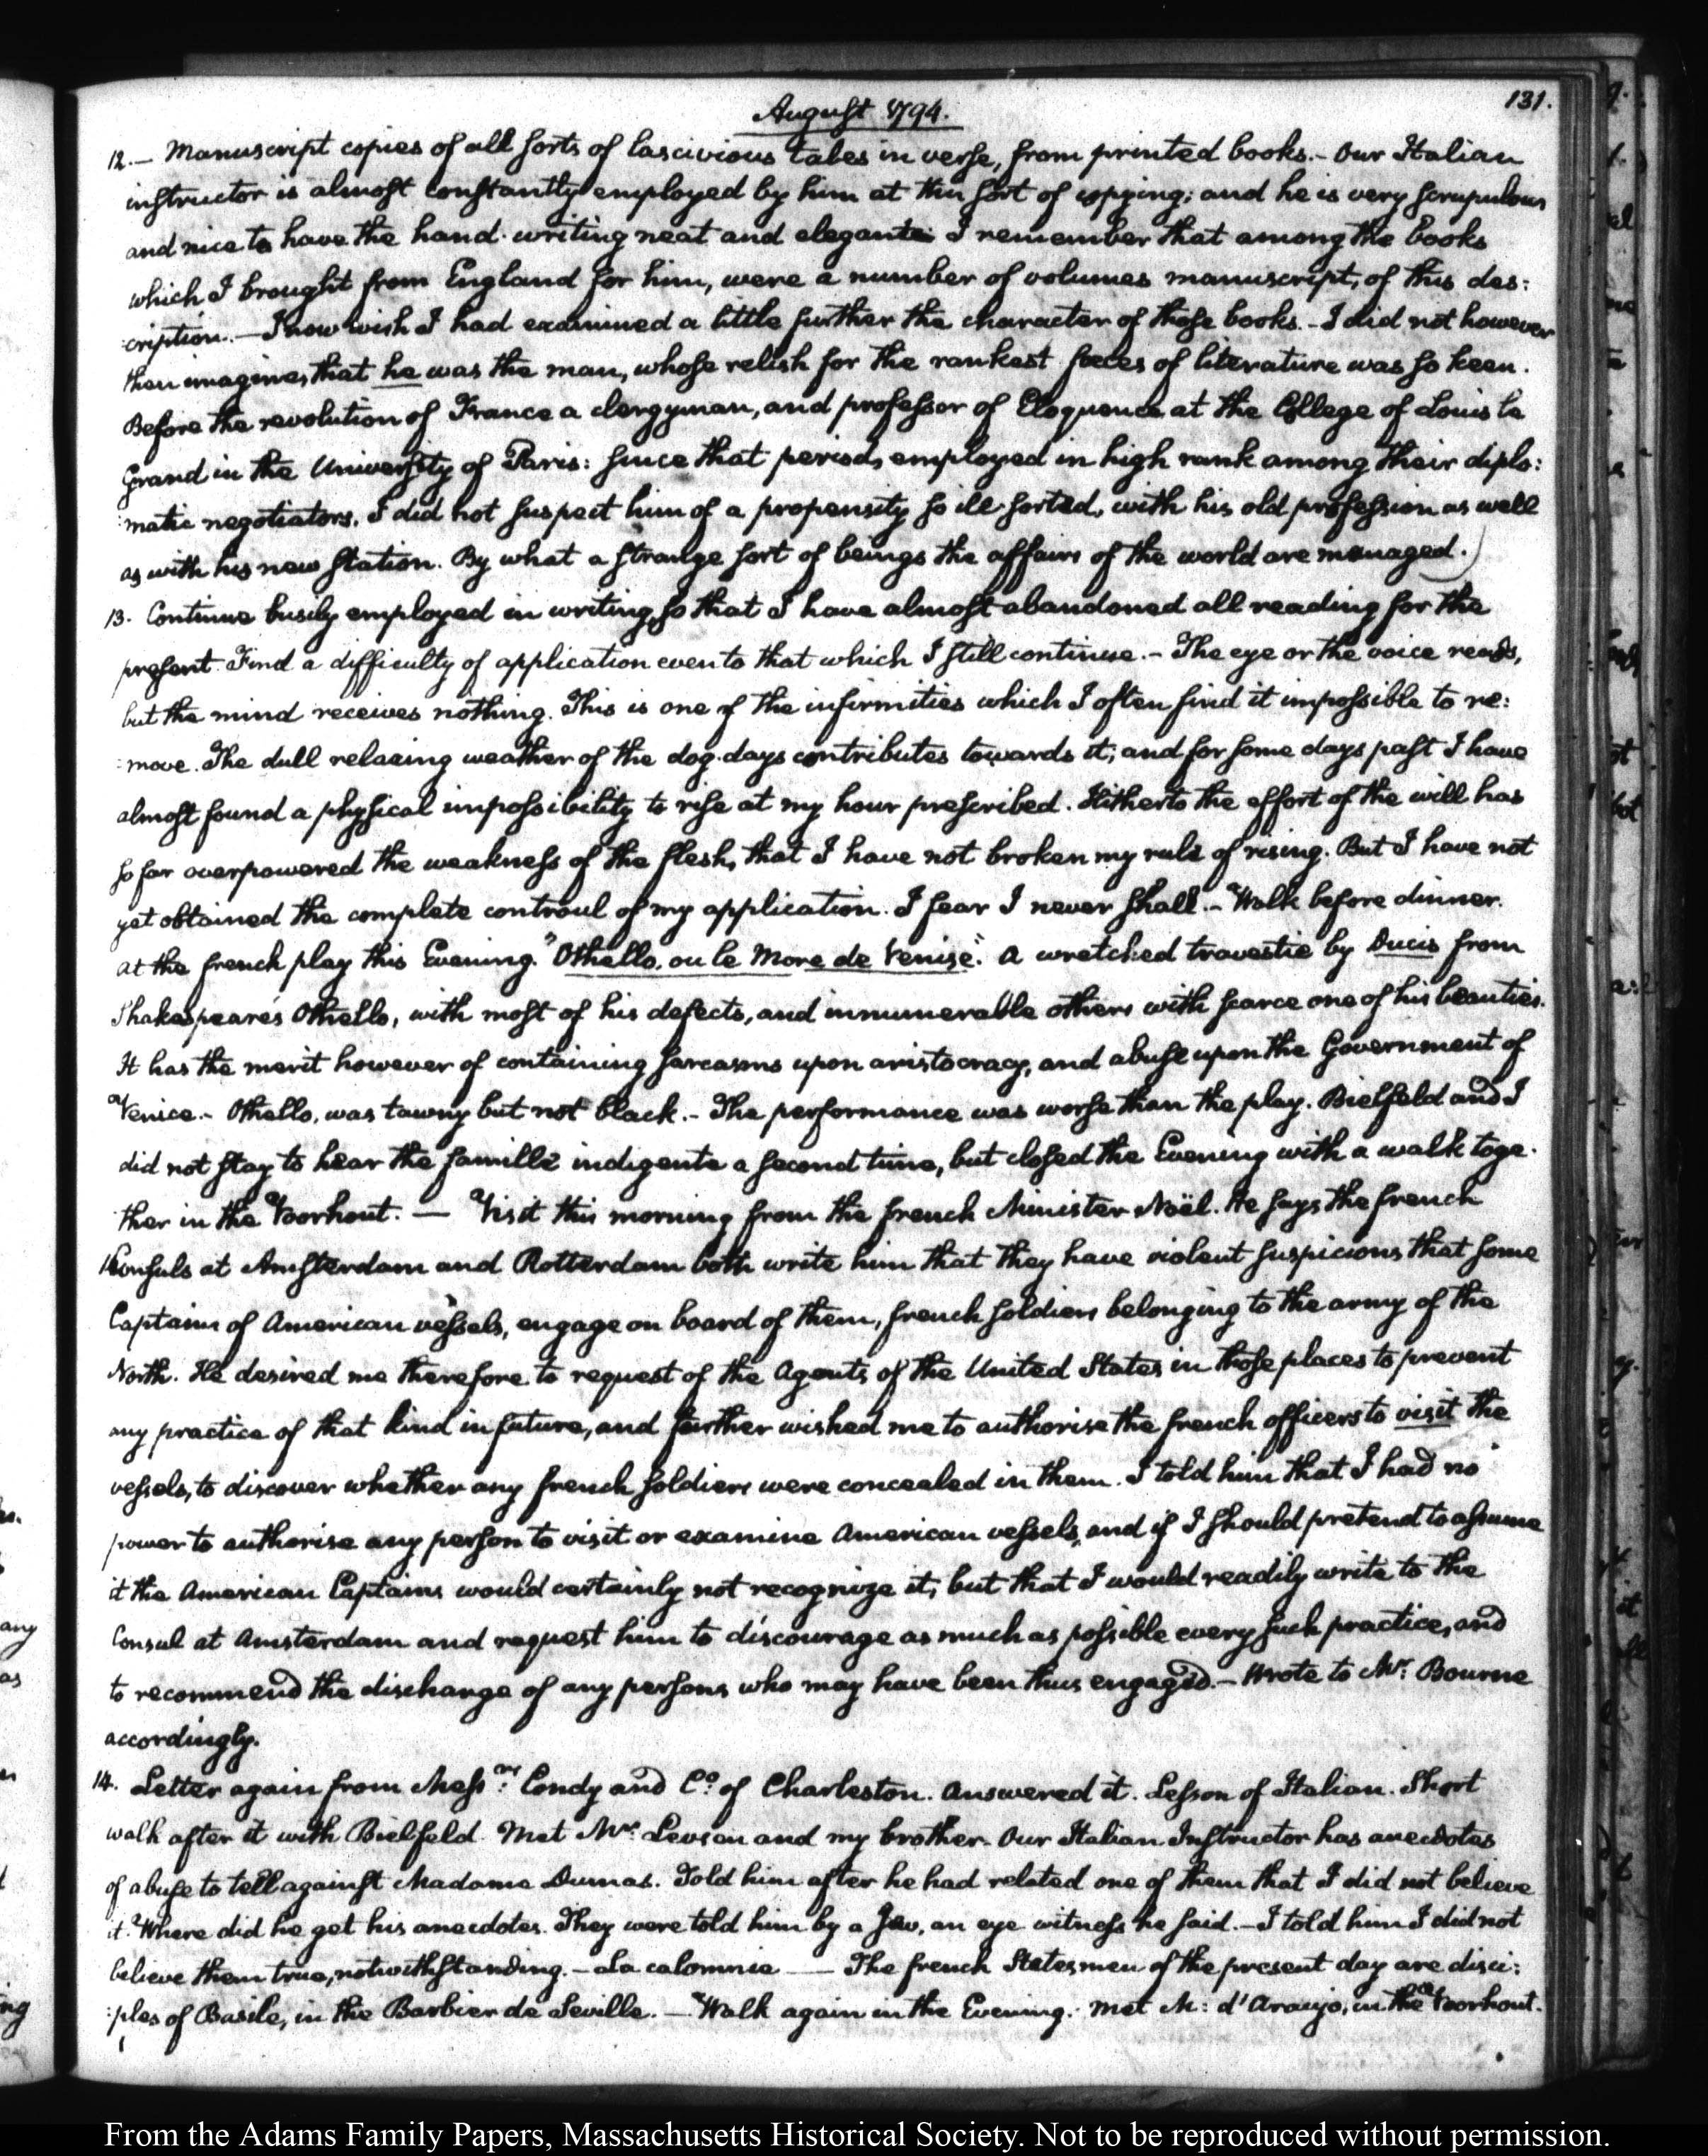 August 1794.
131.
12.— Manuscript copies of all sorts of lascivious tales in verse, from printed books.- Our Italian
instructor is almost constantly employed by him at this sort of copying; and he is very scrupulous
and nice to have the hand-writing neat and elegant. I remember that among the books
which I brought from England for him, were a number of volumes manuscript, of this des:
:cription.— I now wish I had examined a little further the character of those books.- I did not however
then imagine, that he was the man, whose relish for the rankest fæces of literature was so keen.
Before the revolution of France a clergyman, and professor of Eloquence at the College of Louis le
Grand in the University of Paris: since that period, employed in high rank among their diplo:
:matic negotiators, I did not suspect him of a propensity so ill sorted, with his old profession as well
as with his new station. By what a strange sort of beings the affairs of the world are managed.)
13. Continue busily employed in writing, so that I have almost abandoned all reading for the
present. Find a difficulty of application even to that which I still continue.- The eye or the voice reads,
but the mind receives nothing. This is one of the infirmities which I often find it impossible to re:
:move. The dull relaxing weather of the dog-days contributes towards it; and for some days past I have
almost found a physical impossibility to rise at my hour prescribed. Hitherto the effort of the will has
so far overpowered the weakness of the flesh, that I have not broken my rule of rising. But I have not
yet obtained the complete controul of my application. I fear I never shall.- Walk before dinner.
At the french play this Evening. "Othello, ou le More de Venise". A wretched travestie by Ducis from
Shakespeare's Othello, with most of his defects, and innumerable others with scarce one of his beauties.
It has the merit however of containing sarcasms upon aristocracy, and abuse upon the Government of
Venice.- Othello, was tawny but not black.- The performance was worse than the play. Bielfeld and I
did not stay to hear the famille indigente a second time, but closed the Evening with a walk toge-
ther in the Voorhout. — Visit this morning from the french Minister Noël. He says the french
Consuls at Amsterdam and Rotterdam both write him that they have violent suspicions that some
Captains of American vessels, engage on board of them, french soldiers belonging to the army of the
North. He desired me therefore to request of the Agents of the United States in those places to prevent
any practice of that kind in future, and further wished me to authorise the french officers to visit the
vessels, to discover whether any french soldiers were concealed in them. I told him that I had no
power to authorise any person to visit or examine American vessels, and if I should pretend to assume
it the American Captains would certainly not recognize it; but that I would readily write to the
Consul at Amsterdam and request him to discourage as much as possible every such practice, and
to recommend the discharge of any persons who may have been thus engaged.- Wrote to Mr: Bourne
accordingly.
14. Letter again from Messrs: Condy and Co. of Charleston. Answered it. Lesson of Italian. Short
walk after it with Bielfeld. Met Mr: Levson and my brother. Our Italian Instructor has anecdotes
of abuse to tell against Madame Dumas. Told him after he had related one of them that I did not believe
it. Where did he get his anecdotes. They were told him by a Jew, an eye witness he said.- I told him I did not
believe them true, notwithstanding.- La calomnie — The french Statesmen of the present day are disci:
:ples of Basile, in the Barbier de Seville. — Walk again in the Evening. Met M: d'Araujo, in the Voorhout.
From the Adams Family Papers, Massachusetts Historical Society. Not to be reproduced without permission.